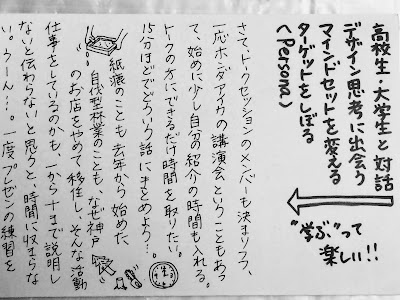 高校生・大学生と対話
デザイン思考に出会う
マインドセットを変える
ターゲットをしぼる
(Persona)
“学ぶ”って
楽しい!!
さて、トークセッションのメンバーも決まりつつ、
一応ホンダアイカの講演会ということもあっ
て、始めに少し自分の紹介の時間も入れる。
トークの方にできるだけ時間を取りたい。
15分ほどでどういう話にまとめよう…。
紙漉のことも、去年から始めた
自伐型林業のことも、なぜ神戸
のお店をやめて移住し、そんな活動
仕事をしているのかも、一から十まで説明し
ないと伝わらないと思うと、時間に収まらな
い。うーん…。一度プレゼンの練習を